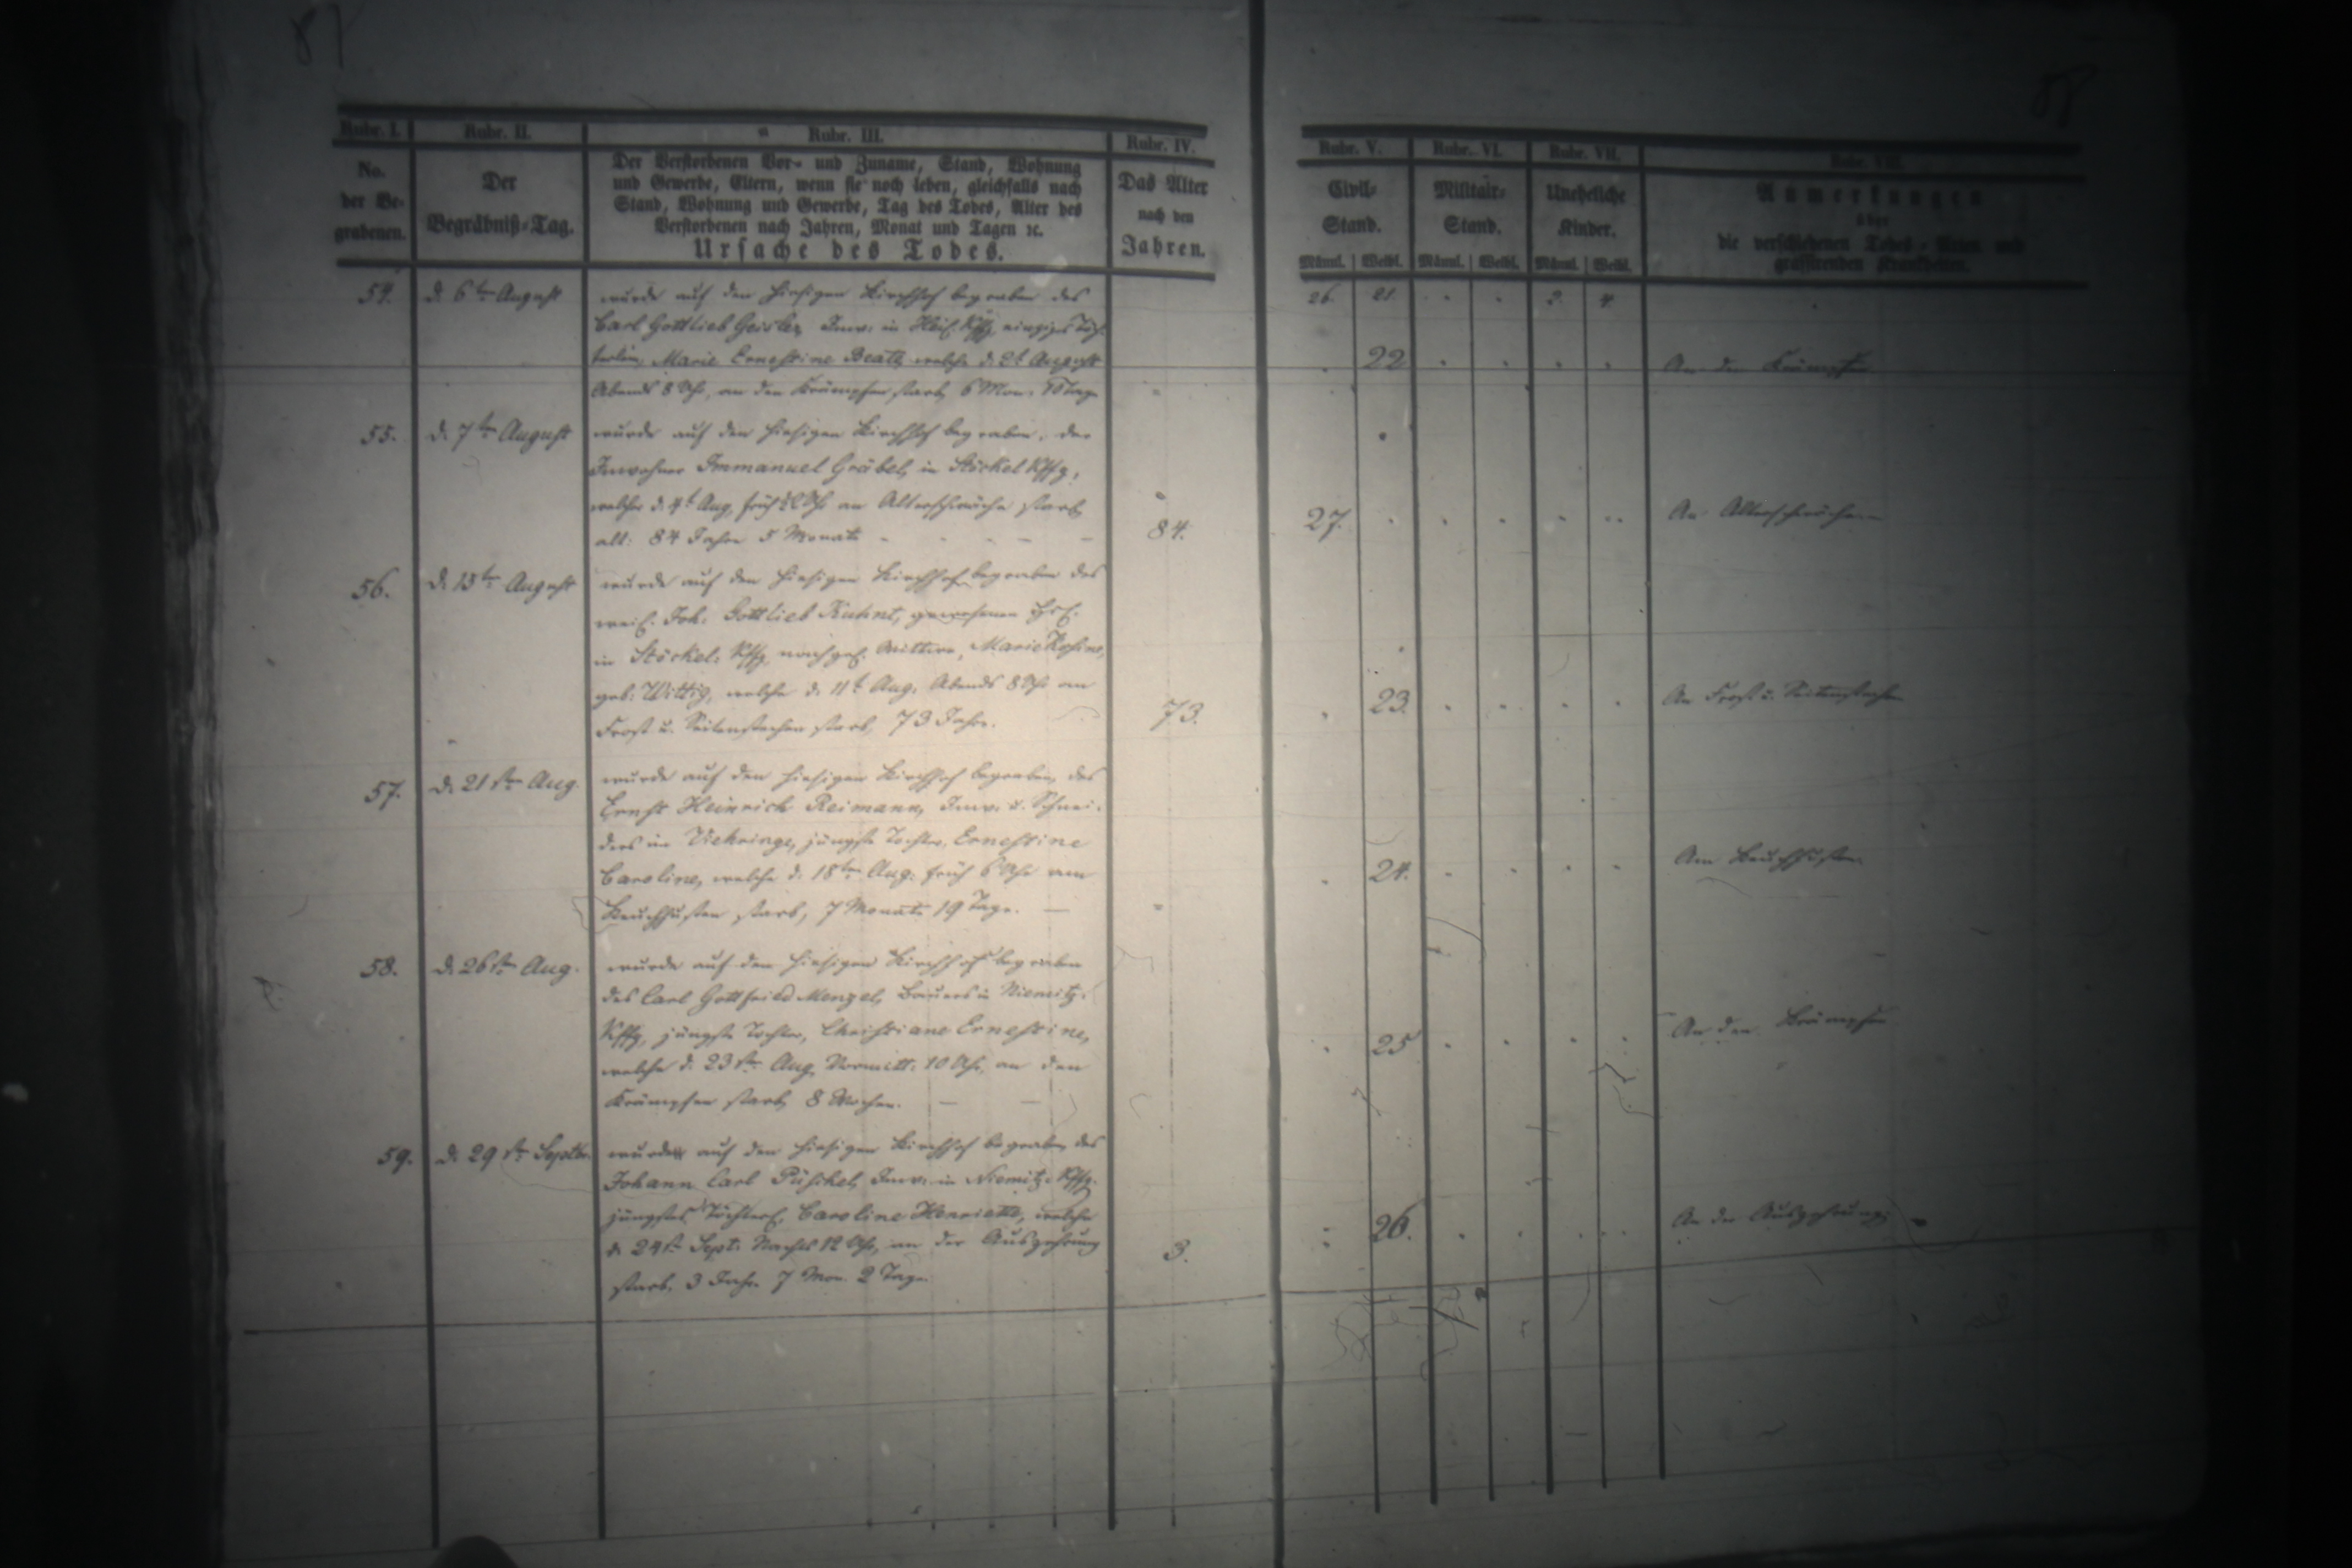 87
88
Rubr. I. Rubr. II. Rubr. III. Rubr. IV. Rubr. V. Rubr. VI. Rubr. VII. Rubr. VIII.
No. der Be- grabenen.
Der Begräbniß-Tag.
Der Verstorbenen Vor- und Zuname, Stand, Wohnung
und Gewerbe, Eltern, wenn sie noch leben, gleichfalls nach
Stand, Wohnung und Gewerbe, Tag des Todes, Alter des
Verstorbenen nach Jahren, Monat und Tagen ꝛc.
Ursache des Todes.
Das Alter nach den Jahren.
Civil- Stand.
Militair- Stand.
Uneheliche Kinder.
Anmerkungen
über
die verschiedenen Todes-Arten und
grassirenden Krankheiten.
Männl. Weibl. Männl. Weibl. Männl. Weibl.
54. d. 6ten August wurde auf den hiesigen Kirchhof begraben des 26. 21. 2. 4.
Carl Gottlieb Geisler, Inw. in einziges Töch-
terlein, Marie Ernestine Beate, welche d. 2t August 22 An den Krämpfen
Abends 8 Uhr, an den Krämpfen starb, 6 Mon. Tage
55. d. 7ten August wurde auf den hiesigen Kirchhof begraben, der
Inwohner Immanuel Gräbel, in Stöckel Kffg,
welcher d. 4t Aug. früh Uhr an Altersschwäche starb
alt: 84 Jahre 5 Monate 84. 27. An Altersschwäche
56. d. 15ten August wurde auf den hiesigen Kirchhof begraben des
weil. Joh. Gottlieb Kuhnt, gewesenen
in Stöckel: Kffg, nachgel. Wittwe, Marie Rosine,
geb: Wittig, welche d. 11t Aug. Abends 8 Uhr an
Frost u. Seitenstechen starb, 73 Jahr. 73. 23. An Frost u. Seitenstechen
57. d. 21sten Aug. wurde auf den hiesigen Kirchhof begraben, des
Ernst Heinrich Reimann, Inw. u. Schnei-
ders im Viehringe, jüngste Tochter, Ernestine
Caroline, welche d. 18ten Aug. früh 6 Uhr am 24. Am Keuchhusten
Keuchhusten starb, 7 Monate 19 Tage.
58. d. 26sten Aug. wurde auf den hiesigen Kirchhof begraben
des Carl Gottfried Menzel, Bauers in Niemitz.
Kffg, jüngste Tochter, Christiane Ernestine,
welche d. 23sten Aug. Vormitt. 10 Uhr, an den 25 An den Krämpfen
Krämpfen starb, 8 Wochen.
59. d. 29st. Septbr. wurde auf den hiesigen Kirchhof begraben, des
Johann Carl Püschel, Inw. in Niemitz. Kffg.
jüngstes Töchterl. Caroline Henriette, welche
d. 24st. Sept. Nachts 12 Uhr, an der Auszehrung 3. 26. An der Auszehrung
starb, 3 Jahr 7 Mon. 2 Tage.